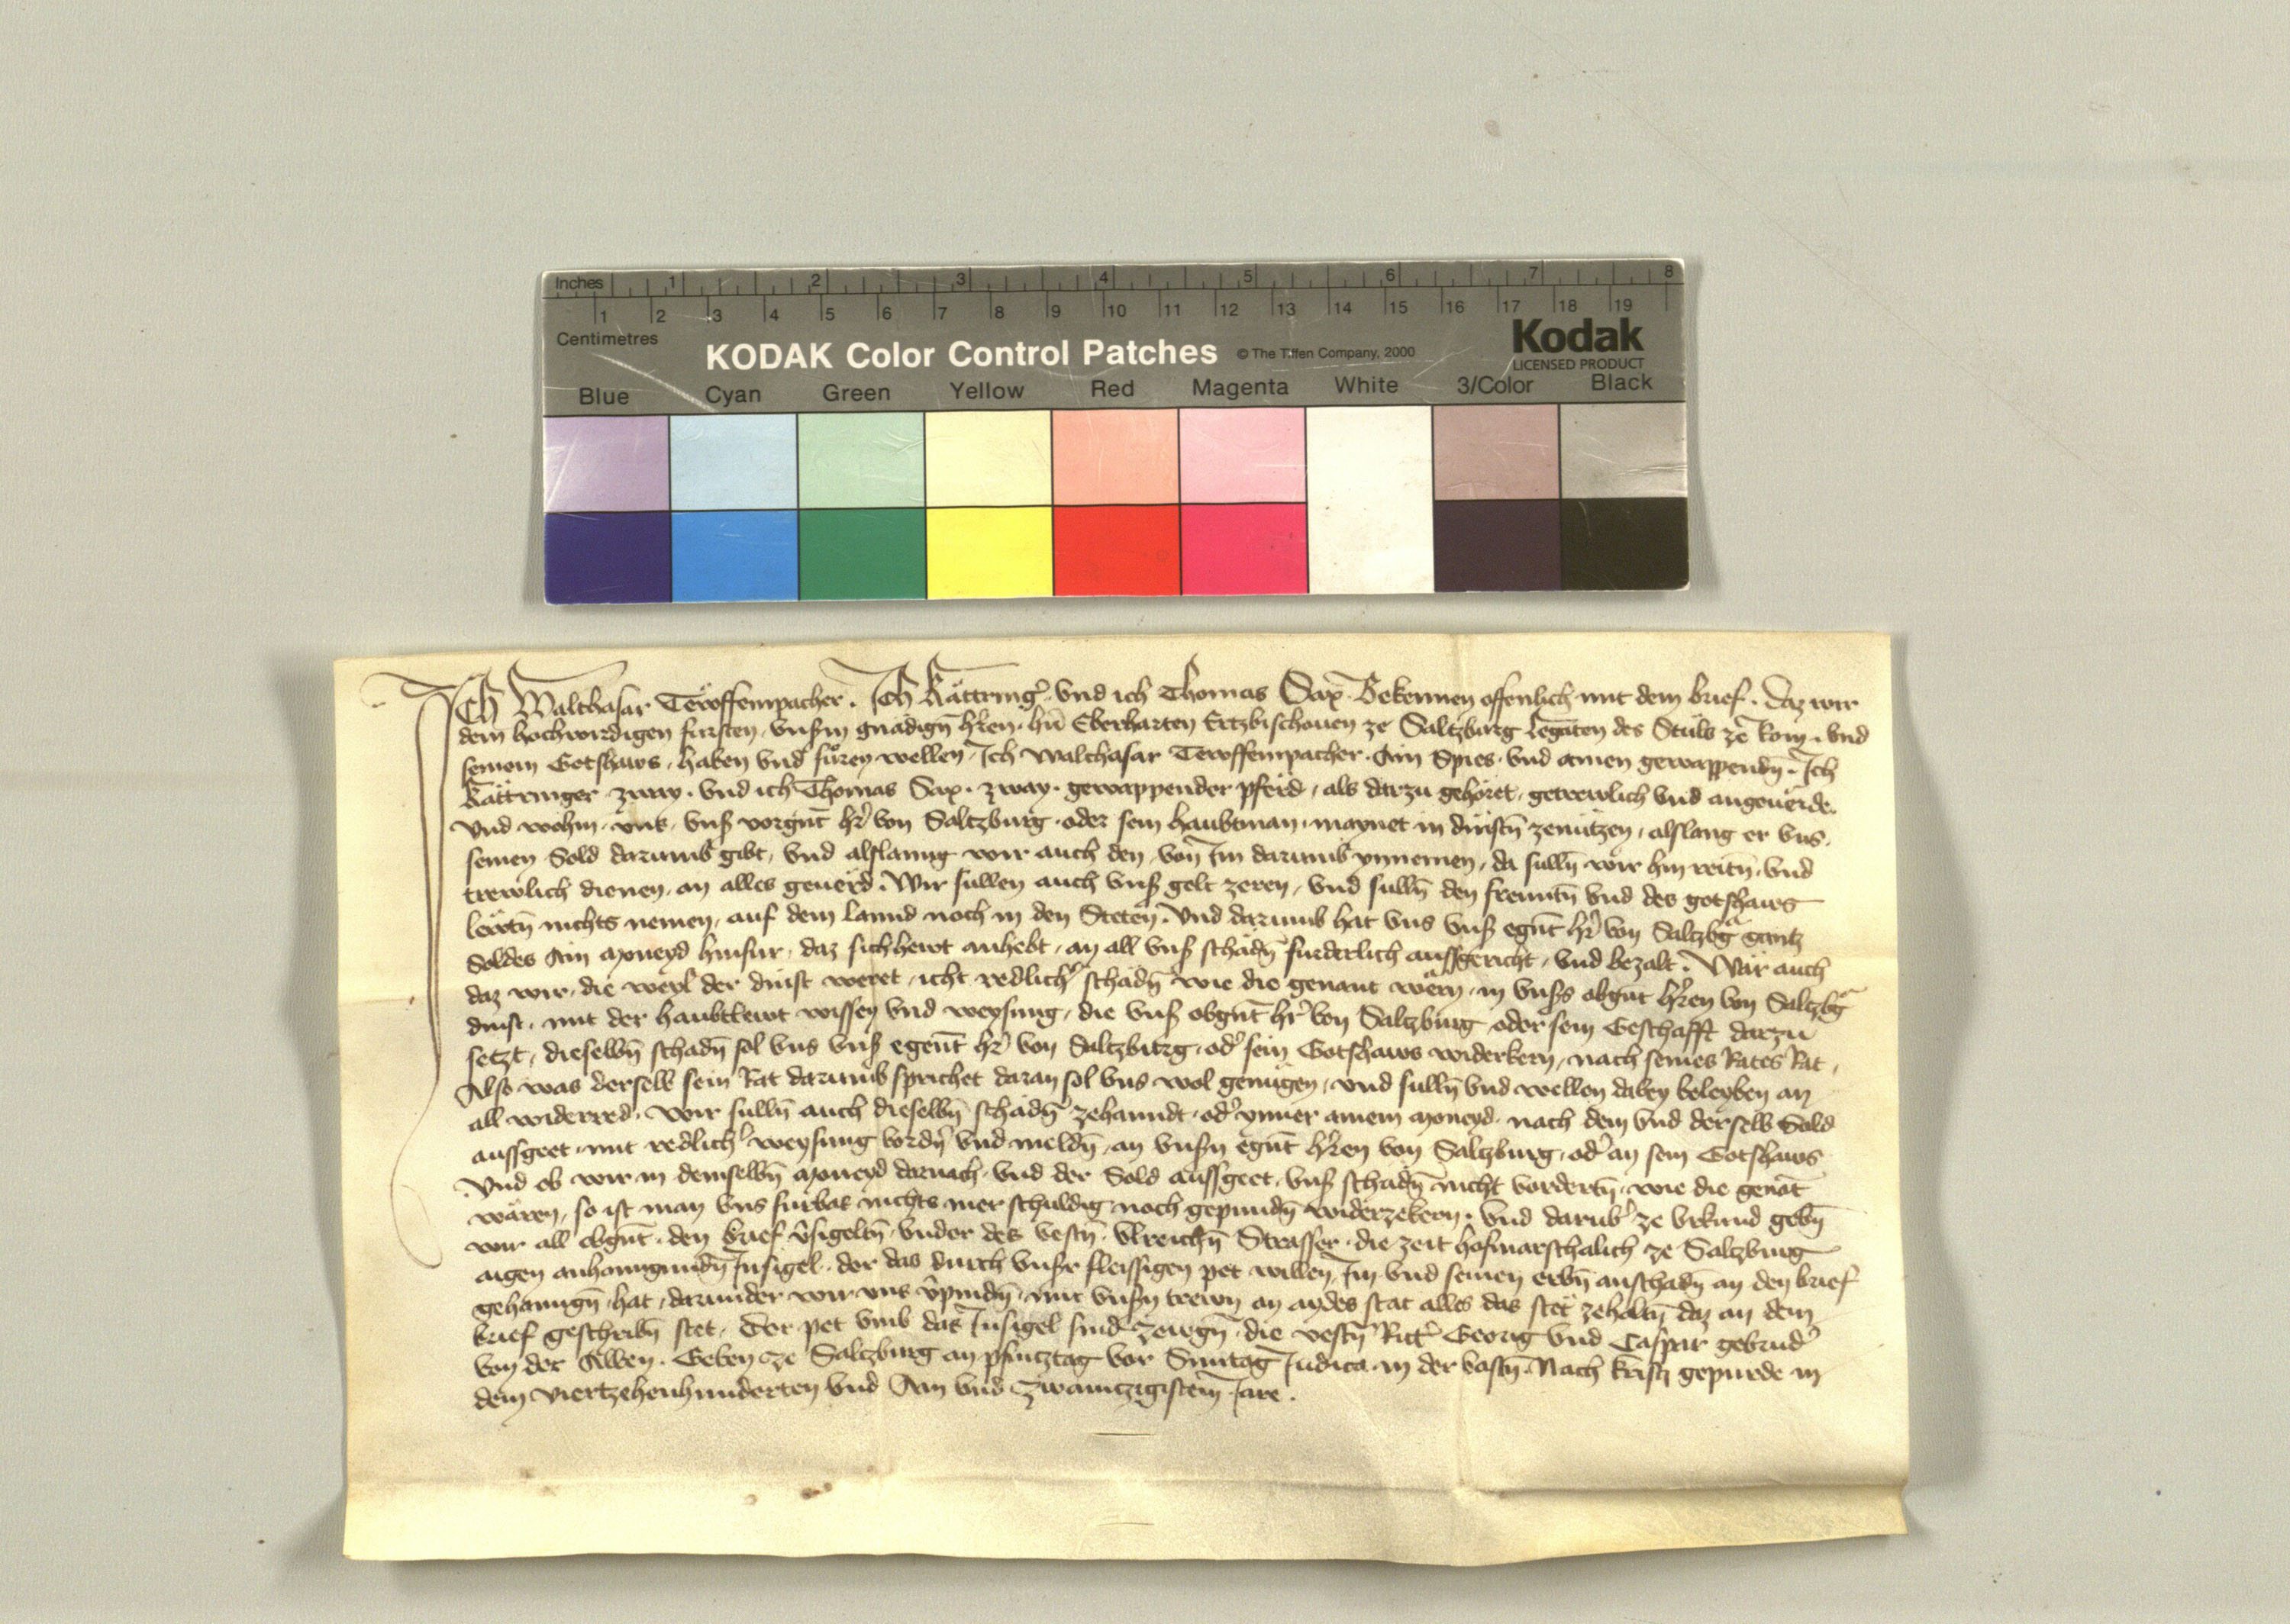 Inches 1 2 3 4 5 6 7 8
1 2 3 4 5 6 7 8 9 10 11 12 13 14 15 16 17 18 19
Centimetres
KODAK Color Control Patches © The Tiffen Company, 2000 Kodak
LICENSED PRODUCT
Blue Cyan Green Yellow Red Magenta White 3/Color Black
Ich Walthasar Tewffempacher. Ich Kättringʼ. vnd ich Thomas Sax. Bekennen offenlich mit dem brief. Daz wir
dem hochwirdigen fursten, vnsʼm gnädign̄ hʼren. hn̄ Eberharten Ertzbischouen ze Saltzburg legaten des Stuls ze Rom. vnd
seinem Gotshaws, haben vnd fůren wellen, Ich Walthasar Tewffempacher. Ain Spies. vnd ainen gewappendn̄. Ich
Kättringer zway. vnd ich Thomas Sax. zway. gewappender pferd, als darzu gehöret, getrewlich vnd angeuerde.
vnd wohin. vns. vnsʼ vorgn̄t hʼr von Saltzburg. oder sein haubtman, maynet in dinstn̄ zenützen, alslang er vns.
seinen Sold darumb gibt, vnd alslanng wir auch den, von Im darumb ynnemen, da sulln̄ wir hin reitn̄, vnd
trewlich dienen, an alles geuerd. Wir sullen auch vnsʼ gelt zeren, vnd sulln̄ den frenntn̄ vnd des gotshaws
lewtn̄ nichts nemen, auf dem lannd noch in den Steten. Vnd darumb hat vns vnsʼ egn̄t hʼr von Saltzbg gantz
Soldes Ain Moneyd hinfur, daz sich hewt anhebt, an all vnsʼ schädn̄ furderlich aussgericht, vnd bezalt. Wär auch
daz wir, die weyl der dinst weret, icht redlichʼ schädn̄ wie die genant wern, in vnsʼs obgn̄t hʼren von Saltzbg
dinst, mit der haubtlewt wissen vnd weysung, die vnsʼ obgn̄t hʼr von Saltzburg oder sein Geschafft darzu
setzt, dieselbn̄ schadn̄ sol vns vnsʼ egen̄t hʼr von Saltzburg, odʼ sein Gotshaws widerkern, nach seines Rates Rat,
Also was derselb sein Rat darumb sprichet daran sol vns wol genugen, vnd sulln̄ vnd wellen dabey beleyben an
all widerred. Wir sulln̄ auch dieselbn̄ schädn̄ zehanndt, odʼ ynner ainem Moneyd, nach dem vnd derselb Sold
aussgeet, mit redlichʼ weysung vordn̄ vnd meldn̄, an vnsʼn egn̄t hʼren von Saltzburg, odʼ an sein Gotshaws
Vnd ob wir in demselbn̄ Moneyd darnach, vnd der Sold aussgeet, vnsʼ schädn̄ nicht vordertn̄, wie die genāt
wären, so ist man vns furbas nichts mer schuldig noch gepundn̄ widerzekern. Vnd darubʼ ze vrkund gebn̄
wir all obgn̄t, den brief vʼsigeltn̄, vnder des vestn̄, Vlreichn̄ Strasser, die zeit hofmarschalich ze Saltzburg
aigen anhanngundn̄ Insigel, der das durch vnsʼr fleissigen pet willen, Im vnd seinen erbn̄ anschadn̄ an den brief
gehanngn̄ hat, darunder wir vns vʼpindn̄, mit vnsʼn trewn an aydes stat alles das stet zehaltn̄ daz an dem
brief geschribn̄ stet, Der pet vmb das Insigel sind Zewgn̄, die vestn̄ Rittʼ Georig vnd Caspar gebrudʼ
von der Alben. Geben ze Saltzburg an pfintztag vor Sunntag Iudica in der vastn̄. Nach Kristz gepurde in
dem viertzehenhunderten vnd Ain vnd Zwaintzigistem Iare.